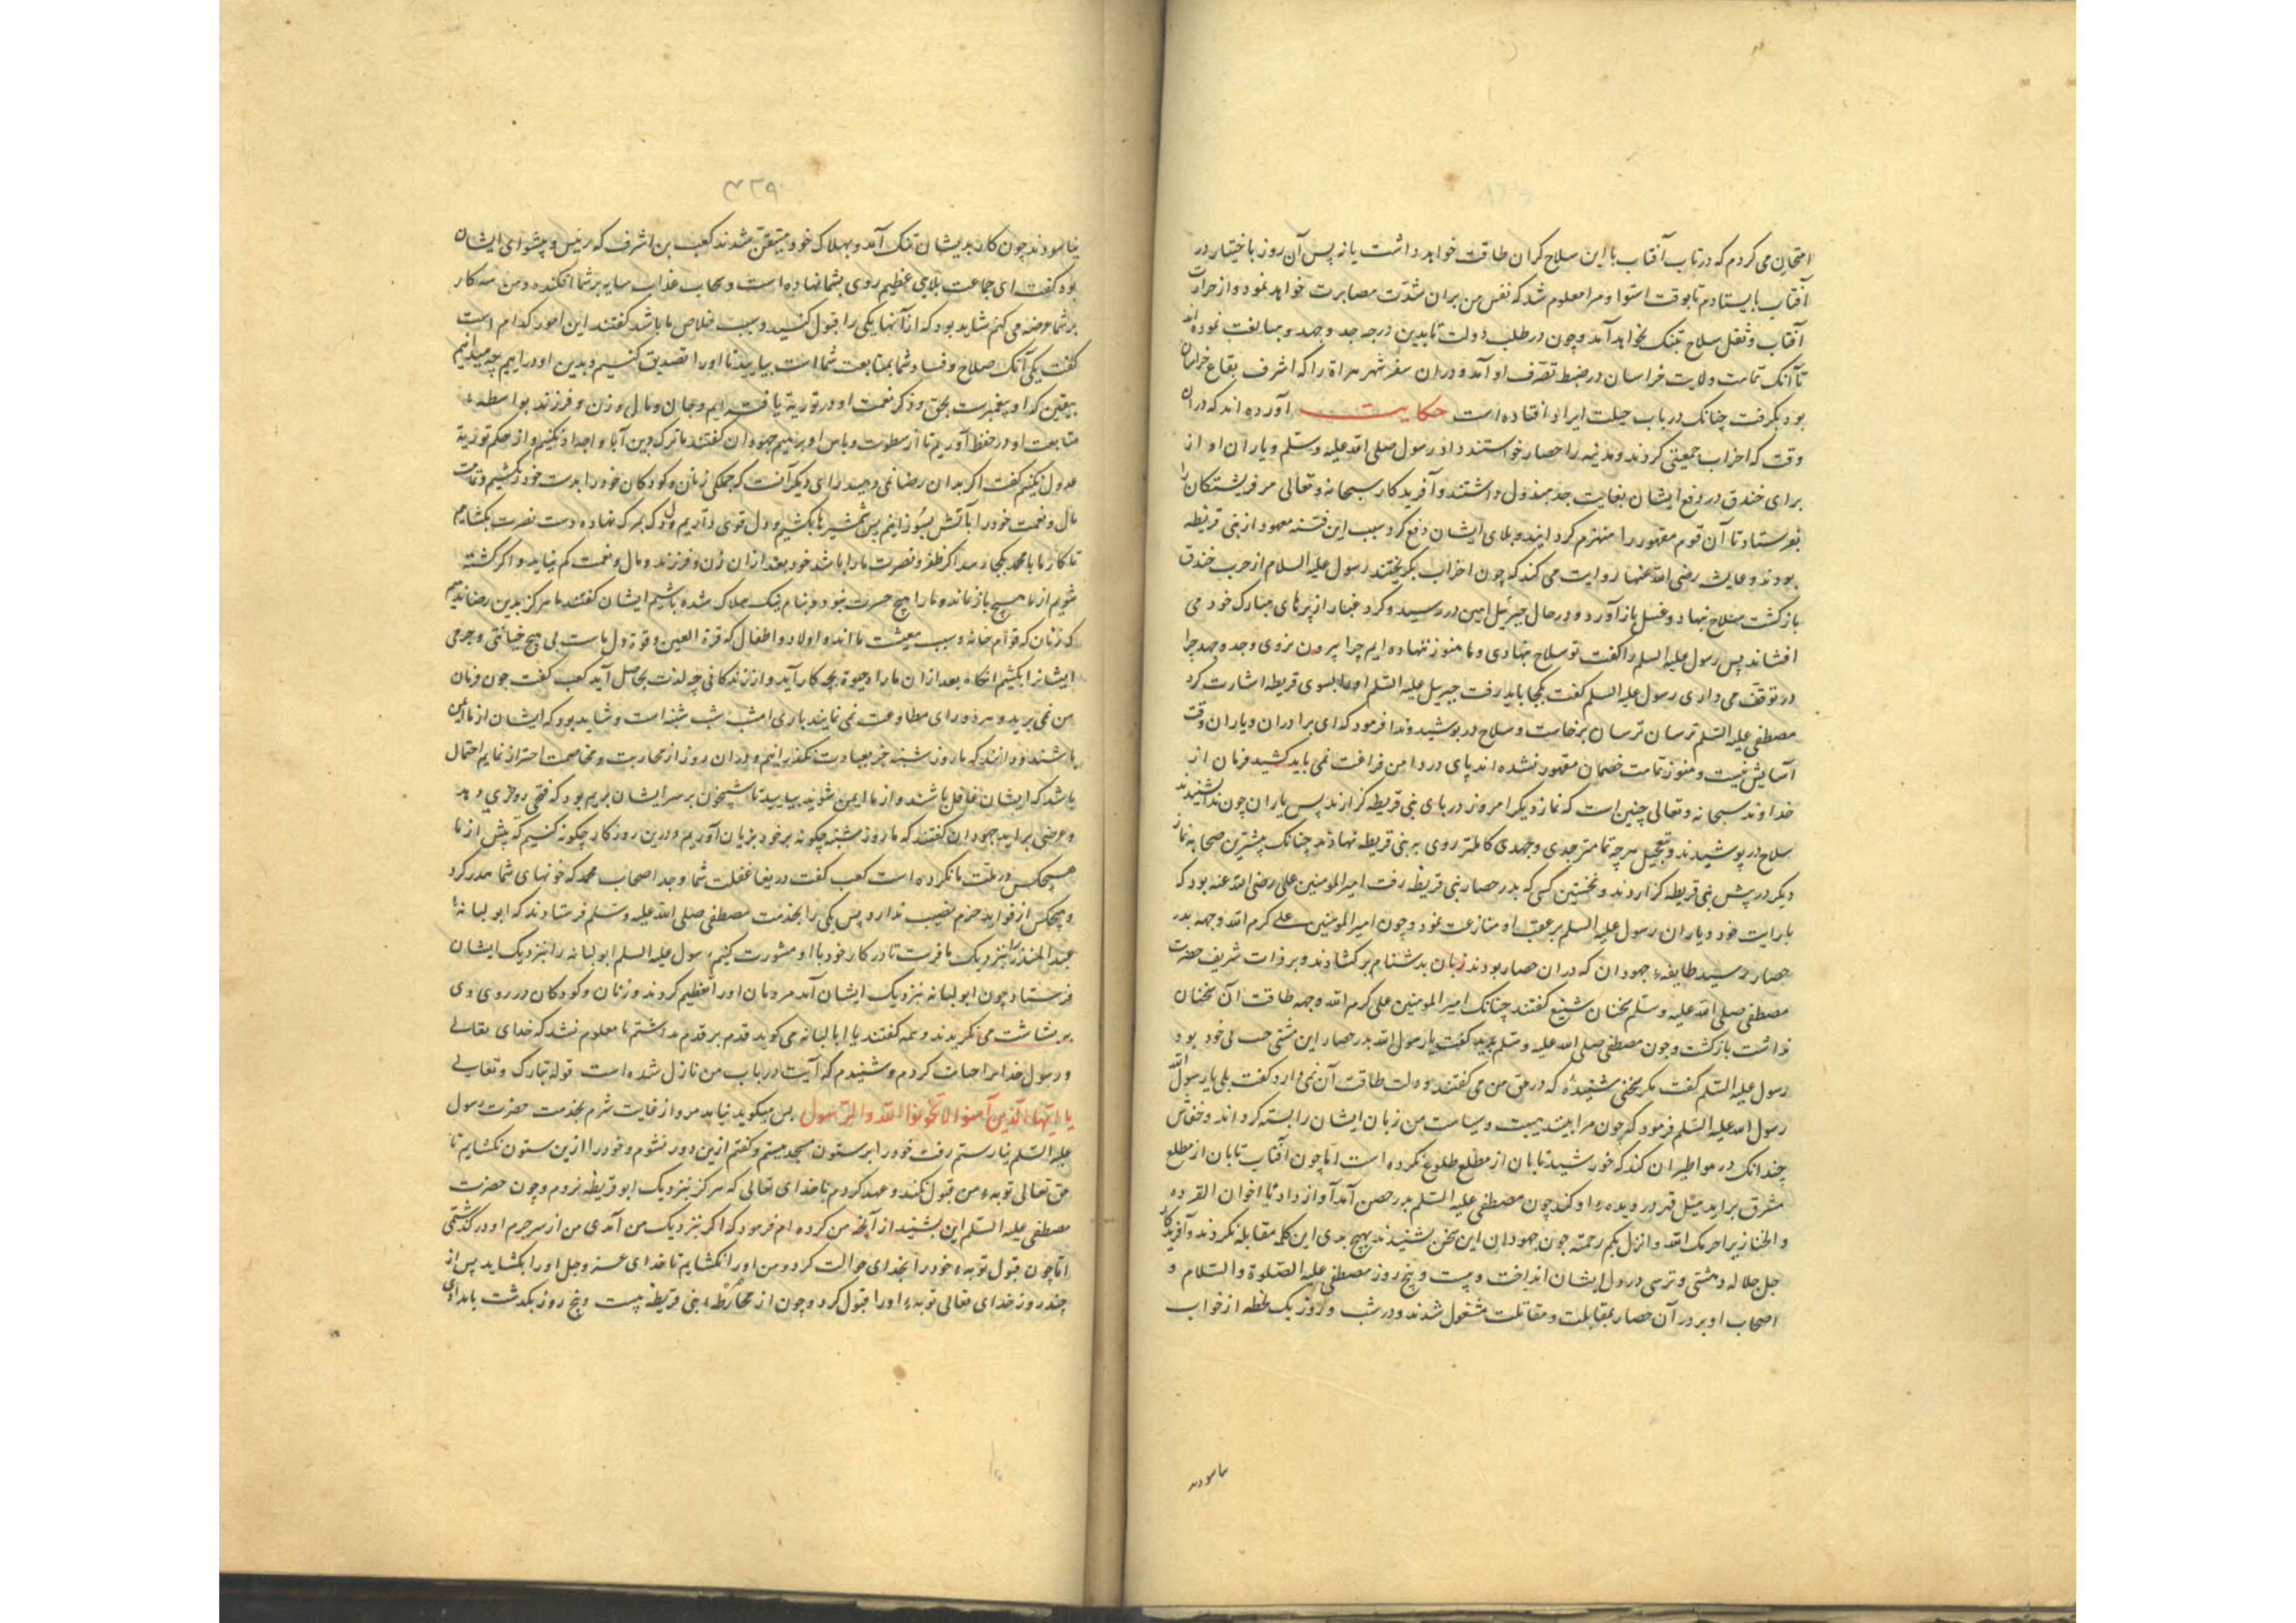 امتحان می کردم که در تاب آفتاب با این سلاح کران طاقت خواهد داشت یا نه پس آن روز باختیار در
آفتاب بایستادم تا بوقت استوا و مرا معلوم شد که نفس من بران شدت مصابرت خواهد نمود و از حرارت
آفتاب و ثقل سلاح بتنک نخواهد آمد و چون در طلب دولت تا بدین درجه جد و جهد و مبالغت نموده اند
تا آنک تمامت ولایت خراسان در ضبط تصرف او آمد و دران سفر شهر هراة را که اشرف بقاع خراسان
بود بکرفت چنانک در باب حیلت ایراد افتاده است حکایت آورده اند که دران
وقت که احزاب جمعیتی کردند و مدینه را حصار خواستند داد رسول صلی الله علیه وسلم و یاران او از
برای خندق در دفع ایشان بغایت جد مبذول داشتند و آفریدکار سبحانه وتعالی مر فریشتکان را
بفرستاد تا آن قوم مقهور را منهزم کردانیدند و بلای ایشان دفع کرد و سبب این فتنه معهود از بنی قریظه
بودند و عایشه رضی الله عنها روایت می کند که چون احزاب بکریختند رسول علیه السلام از حرب خندق
بازکشت سلاح بنهاد و غسل باز آورد و در حال جبرئیل امین در رسید و کرد غبار از پرهای مبارک خود می
افشاند پس رسول علیه السلم را کفت تو سلاح بنهادی و ما هنوز ننهاده ایم چرا بیرون نروی و جد و جهد چرا
در توقف می داری رسول علیه السلم کفت بکجا باید رفت جبریل علیه السلم او را بسوی قریظه اشارت کرد
مصطفی علیه السلم ترسان ترسان برخاست و سلاح در پوشید و ندا فرمود که ای برادران و یاران وقت
آسایش نیست و هنوز تمامت خصمان مقهور نشده اند پای در دامن فراغت نمی باید کشید فرمان از
خداوند سبحانه وتعالی چنین است که نماز دیکر امروز در پای بنی قریظه کزارند پس یاران چون ندا بشنیدند
سلاح در پوشیدند و بتعجیل هر چه تمامتر جدی و جهدی کاملتر روی به بنی قریظه نهادند چنانک بیشترین صحابه نماز
دیکر در پیش بنی قریظه کزاردند و نخستین کسی که بدر حصار بنی قریظه رفت امیرالمومنین علی رضی الله عنه بود که
با رایت خود و یاران رسول علیه السلم بر عقب او منازعت نمود و چون امیرالمومنین علی کرم الله وجهه بدر
حصار رسید طایفه جهودان که دران حصار بودند زبان بدشنام برکشادند و بر ذات شریف حضرت
مصطفی صلی الله علیه وسلم سخنان شنیع کفتند چنانک امیرالمومنین علی کرم الله وجهه طاقت آن سخنان
نداشت بازکشت و چون مصطفی صلی الله علیه وسلم بدید کفت یا رسول الله بدر حصار این مشتی
رسول علیه السلم کفت مکر سخنی شنیدهٔ که در حق من می کفتند و دلت طاقت آن نمی دارد کفت بلی یا رسول الله
رسول الله علیه السلم فرمود که چون مرا ببینند هیبت و سیاست من زبان ایشان را بسته کرداند و خفاش
چندانک در هوا طیران کند که خورشید تابان از مطلع طلوع نکرده است اما چون آفتاب تابان از مطلع
مشرق براید میل قهر در دیده او کند چون مصطفی علیه السلم بدر حصن آمد آواز داد یا اخوان القرده
والخنازیر اخزیکم الله وانزل بکم رحمته چون جهودان این سخن بشنیدند بهیچ بدی این کلمه مقابله نکردند و آفریدکار
جل جلاله دهشتی و ترسی در دل ایشان انداخت و بیست و پنج روز مصطفی علیه الصلوة والسلام و
اصحاب او بر در آن حصار بمقابلت و مقاتلت مشغول شدند و در شب و روز یک لحظه از خواب
نیاسودند
۴۲۹
نیاسودند چون کار بدیشان تنک آمد و بهلاک خود متیقن شدند کعب بن اشرف که رئیس و پیشوای ایشان
بود کفت ای جماعت بلایی عظیم روی بشما نهاده است و سحاب عذاب سایه بر شما افکنده و من سه کار
بر شما عرضه می کنم شاید بود که از آنها یکی را قبول کنید و سبب خلاص ما باشد کفتند این امور کدام است
کفت یکی آنک صلاح و فساد شما بمتابعت شما است بیایید تا او را تصدیق کنیم و بدین او در اییم چه میدانیم
بیقین که او پیغمبرست بحق و ذکر نعمت او در توریة یافته ایم و جان و مال و زن و فرزند بواسطه
متابعت او در حفظ آوریم تا از سطوت و باس او برهیم جهودان کفتند ما ترک دین آبا و اجداد نکنیم و از حکم توریة
عدول نکنیم کفت اکر بدان رضا نمی دهید رای دیکر آنست که جملکی زنان و کودکان خود را بدست خود بکشیم و تمامت
مال و نعمت خود را بآتش بسوزانیم پس شمشیرها بکشیم و دل قوی داریم و دل که بمرک نهاده دست نصرت بکشاییم
تا کار ما با محمد بکجا رسد اکر ظفر و نصرت ما را باشد خود بعد ازان زن و فرزند و مال و نعمت کم نیاید و اکر کشته
شویم از ما هیچ باز نمانده ما را هیچ حسرت نبود و بنام نیک هلاک شده باشیم ایشان کفتند ما هرکز بدین رضا ندهیم
که زنان که قوام خانه و سبب معیشت ما اند و اولاد و اطفال که قرة العین و قوة دل ماست بی هیچ خیانتی و جرمی
ایشانرا بکشیم آنکاه بعد ازان ما را حیوة بچه کار آید و از زندکانی چه لذت بحاصل آید کعب کفت چون فرمان
من نمی برید و هر دو رای مطاوعت نمی نمایند باری امشب شب شنبه است و شاید بود که ایشان از ما ایمن
باشند و دانند که ما روز شنبه جز بعبادت نکذرانیم و دران روز از محاربت و مخاصمت احتراز نماییم احتمال
باشد که ایشان غافل باشند و از ما ایمن شوند بیایید تا شبیخون بر سر ایشان بریم بود که فتحی روی دهد
و غرضی براید جهودان کفتند که ما روز شنبه چکونه بر خود بزیان آوریم و درین روز کار چکونه کنیم که پیش از ما
هیچکس در ملت ما نکرده است کعب کفت دریغا غفلت شما و جد اصحاب محمد که خونهای شما هدر کرد
و هیچکس از فواید حزم نصیب ندارد پس یکی را بخدمت مصطفی صلی الله علیه وسلم فرستادند که ابو لبابه
عبد المنذر را بنزدیک ما فرست تا در کار خود با او مشورت کنیم رسول علیه السلم ابو لبابه را بنزدیک ایشان
فرستاد چون ابو لبابه بنزدیک ایشان آمد مردمان او را تعظیم کردند و زنان و کودکان در روی وی
ببشاشت می نکریدند و همه کفتند یا ابا لبابه می کوید قدم بر قدم نداشتم تا معلوم نشد که خدای تعالی
و رسول خدا را خیانت کردم و شنیدم که آیت در باب من نازل شده است قوله تبارک وتعالی
یا ایها الذین آمنوا لا تخونوا الله والرسول پس میکوید نیامدم و از غایت شرم بخدمت حضرت رسول
علیه السلم نیارستم رفت خود را بر ستون مسجد بستم و کفتم ازین دور نشوم و خود را ازین ستون نکشایم تا
حق تعالی توبه من قبول نکند و عهد کردم با خدای تعالی که هرکز بنزدیک ابو قریظه نروم و چون حضرت
مصطفی علیه السلم این بشنید از آنچه من کرده ام فرمود که اکر بنزدیک من آمدی من از سر جرم او در کذشتمی
اما چون قبول توبه خود را بخدای حوالت کرد و من او را نکشایم تا خدای عز وجل او را بکشاید پس از
چند روز خدای تعالی توبه او را قبول کرد و چون از محاربه بنی قریظه بیست و پنج روز بکذشت بامدادی